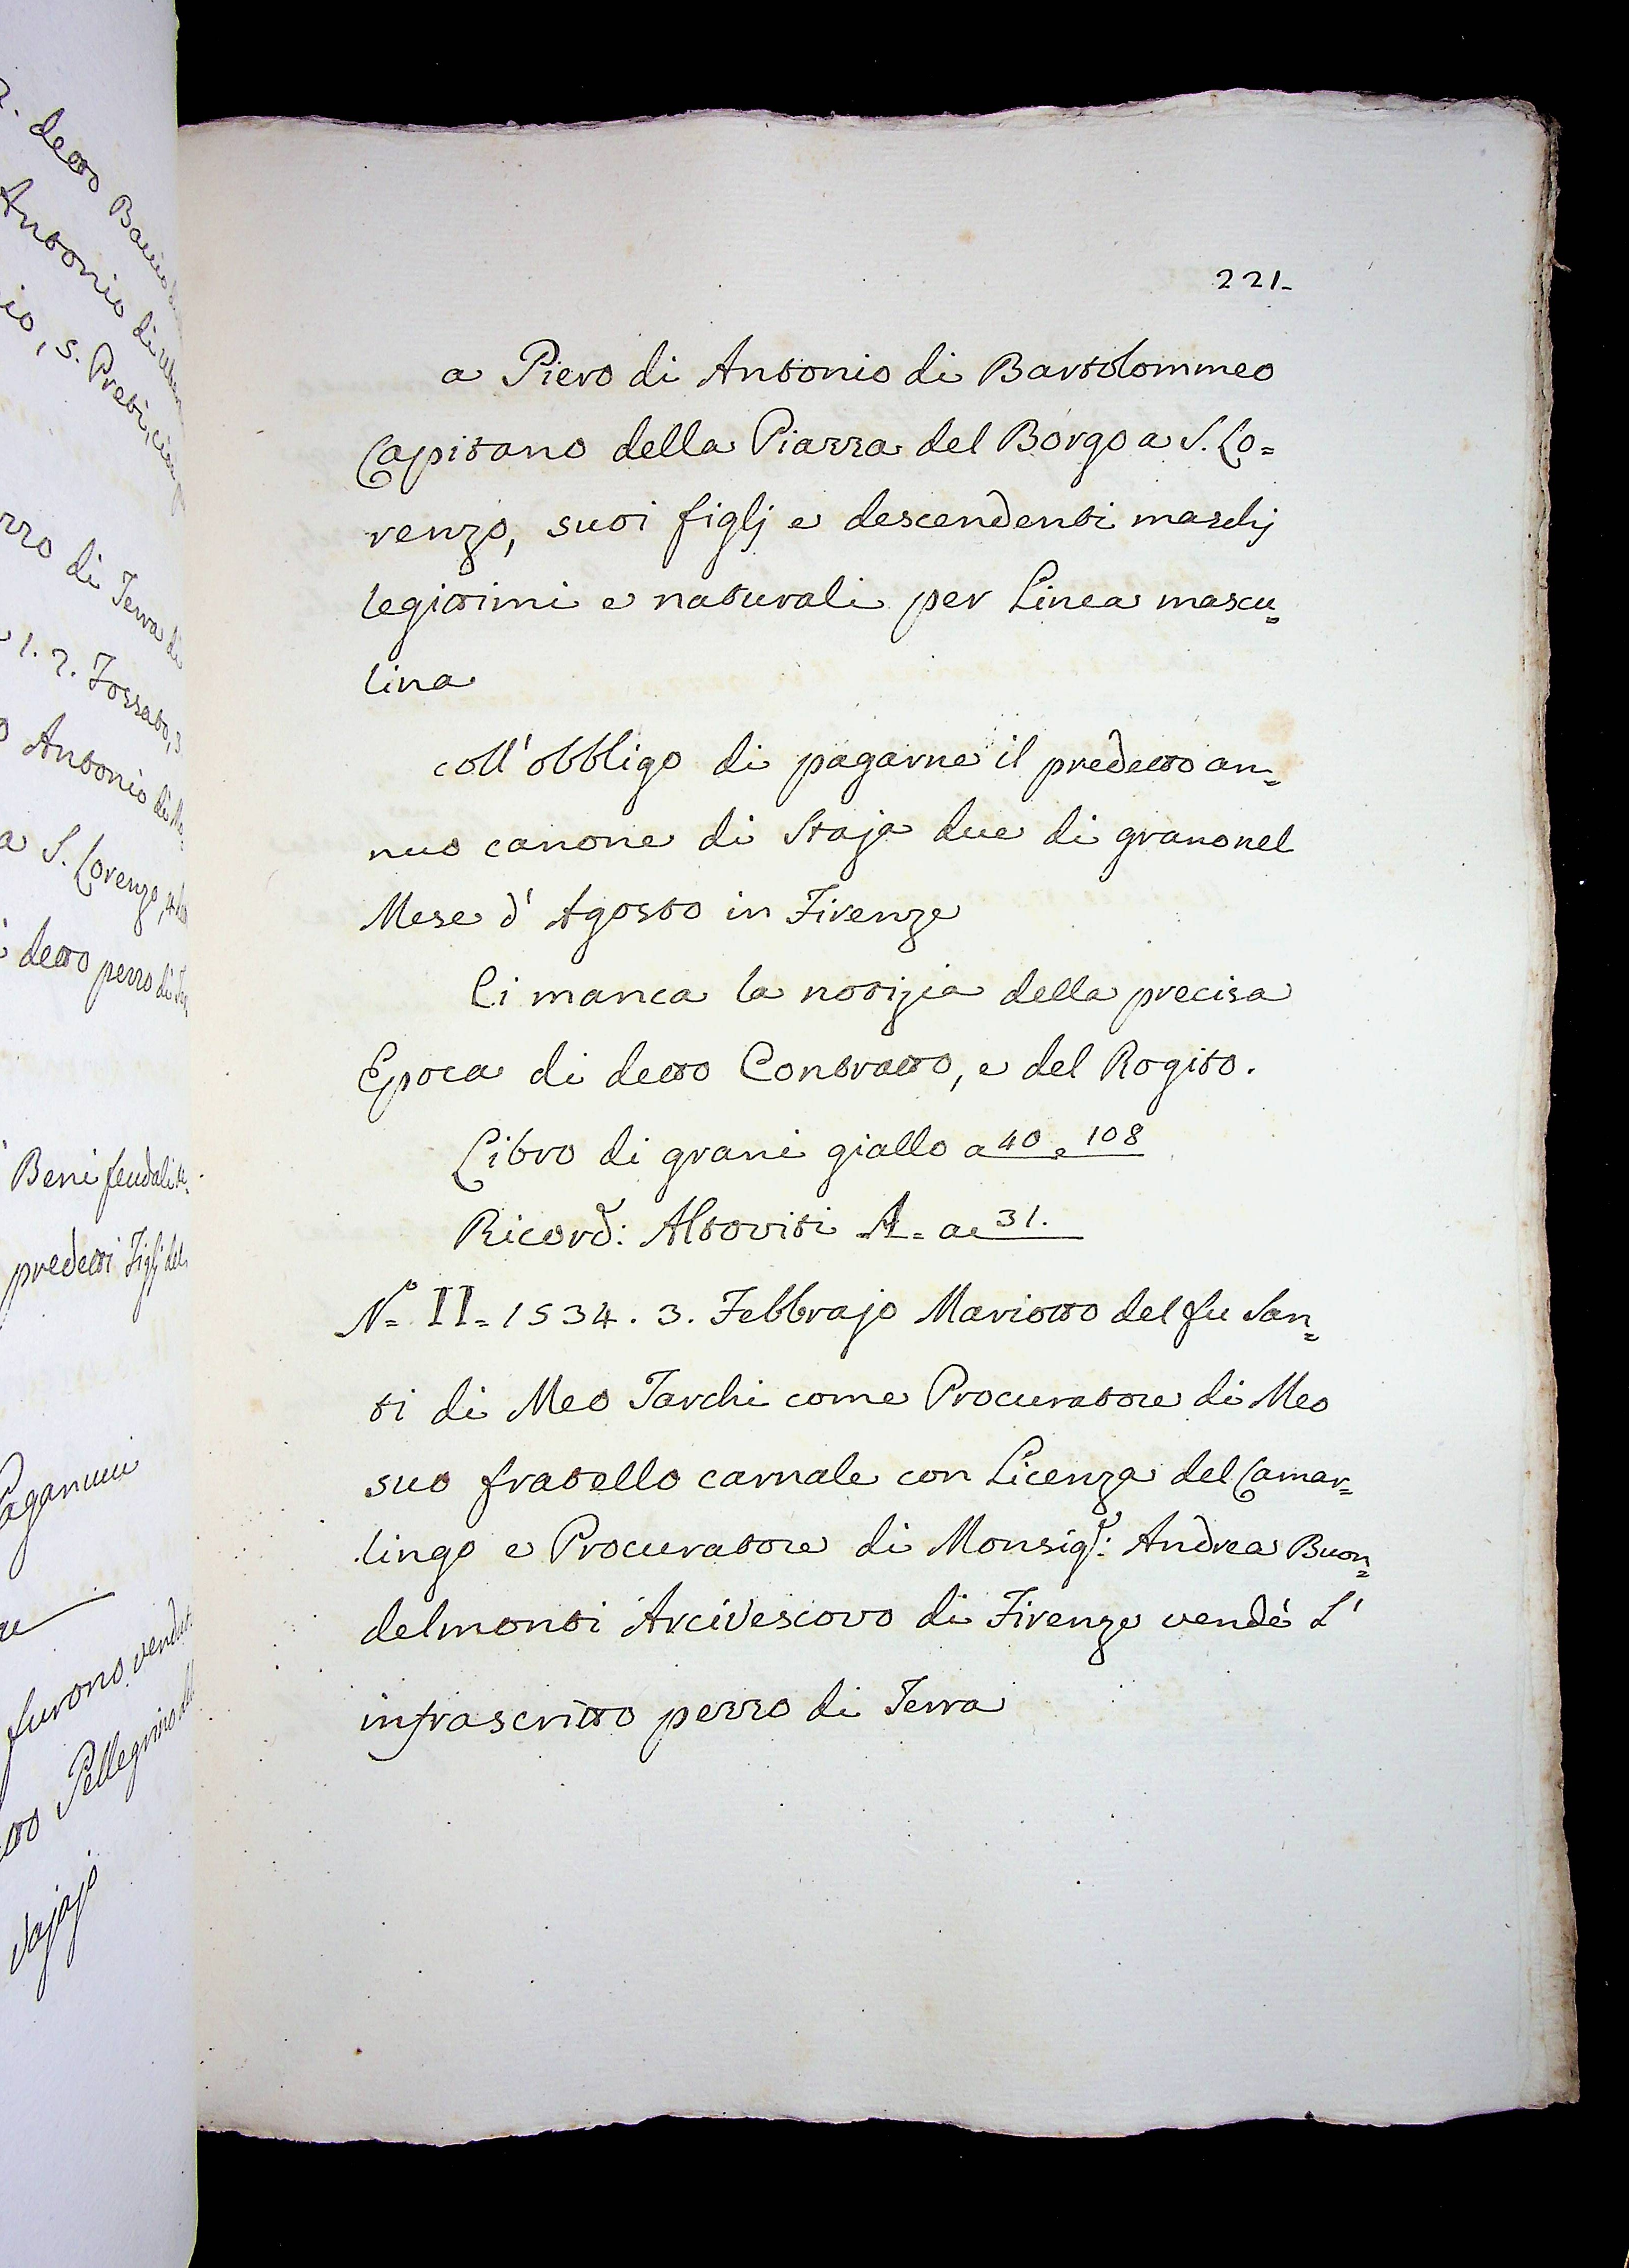 221.
a Piero di Antonio di Bartolommeo
Capitano della Piazza del Borgo a S. Lo=
renzo, suoi figlj e descendenti maschj
legittimi e naturali per Linea mascu=
lina
coll' obbligo di pagarne il predetto an=
nuo canone di Staja due di grano nel
Mese d' Agosto in Firenze
Ci manca la notizia della precisa
Epoca di detto Contratto, e del Rogito.
Libro di grani giallo a 40 e 108
Ricord: Altoviti A= a 31.
N.° II= 1534. 3. Febbrajo Mariotto del fu San=
ti di Meo Tarchi come Procuratore di Meo
suo fratello carnale con Licenza del Camar=
lingo e Procuratore di Monsig.r: Andrea Buon=
delmonti Arcivescovo di Firenze vendé L'
infrascritto pezzo di Terra
detto
Antonio di
io, 5. Preti,
di Terra di
1. 2. Fossato, 3
Antonio di
a S. Lorenzo,
detto pezzo di
Beni feudali
predetti Figlj del
furono
Pellegrino